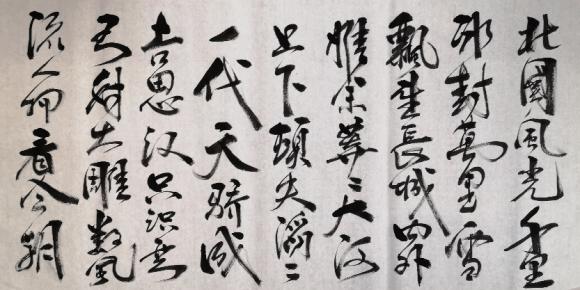 北國風光千里
冰封萬里雪
飄望長城內外
惟余莽〻大河
上下頓失滔〻
一代天驕成
吉思汗只識彎
弓射大雕數風
流人物看今朝